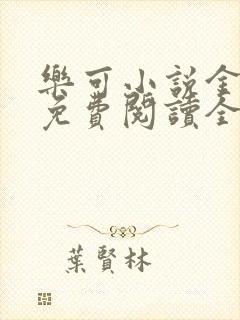 樂可小說全
免費閱讀全
葉賢林